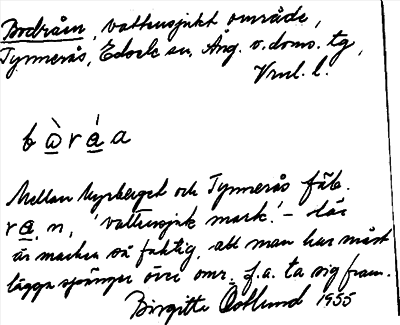 Bodråen, vattensjukt område,
Tynnerås, Edsele sn, Ång. v. doms. tg,
Vml. l.
b ὼ r á a
Mellan Myrberget och Tynnerås fäb.
ra, n, 'vattensjuk mark'. – Här
är marken så fuktig, att man har måst
lägga spänger över omr. f.a. ta sig fram.
Birgitta Östlund 1955